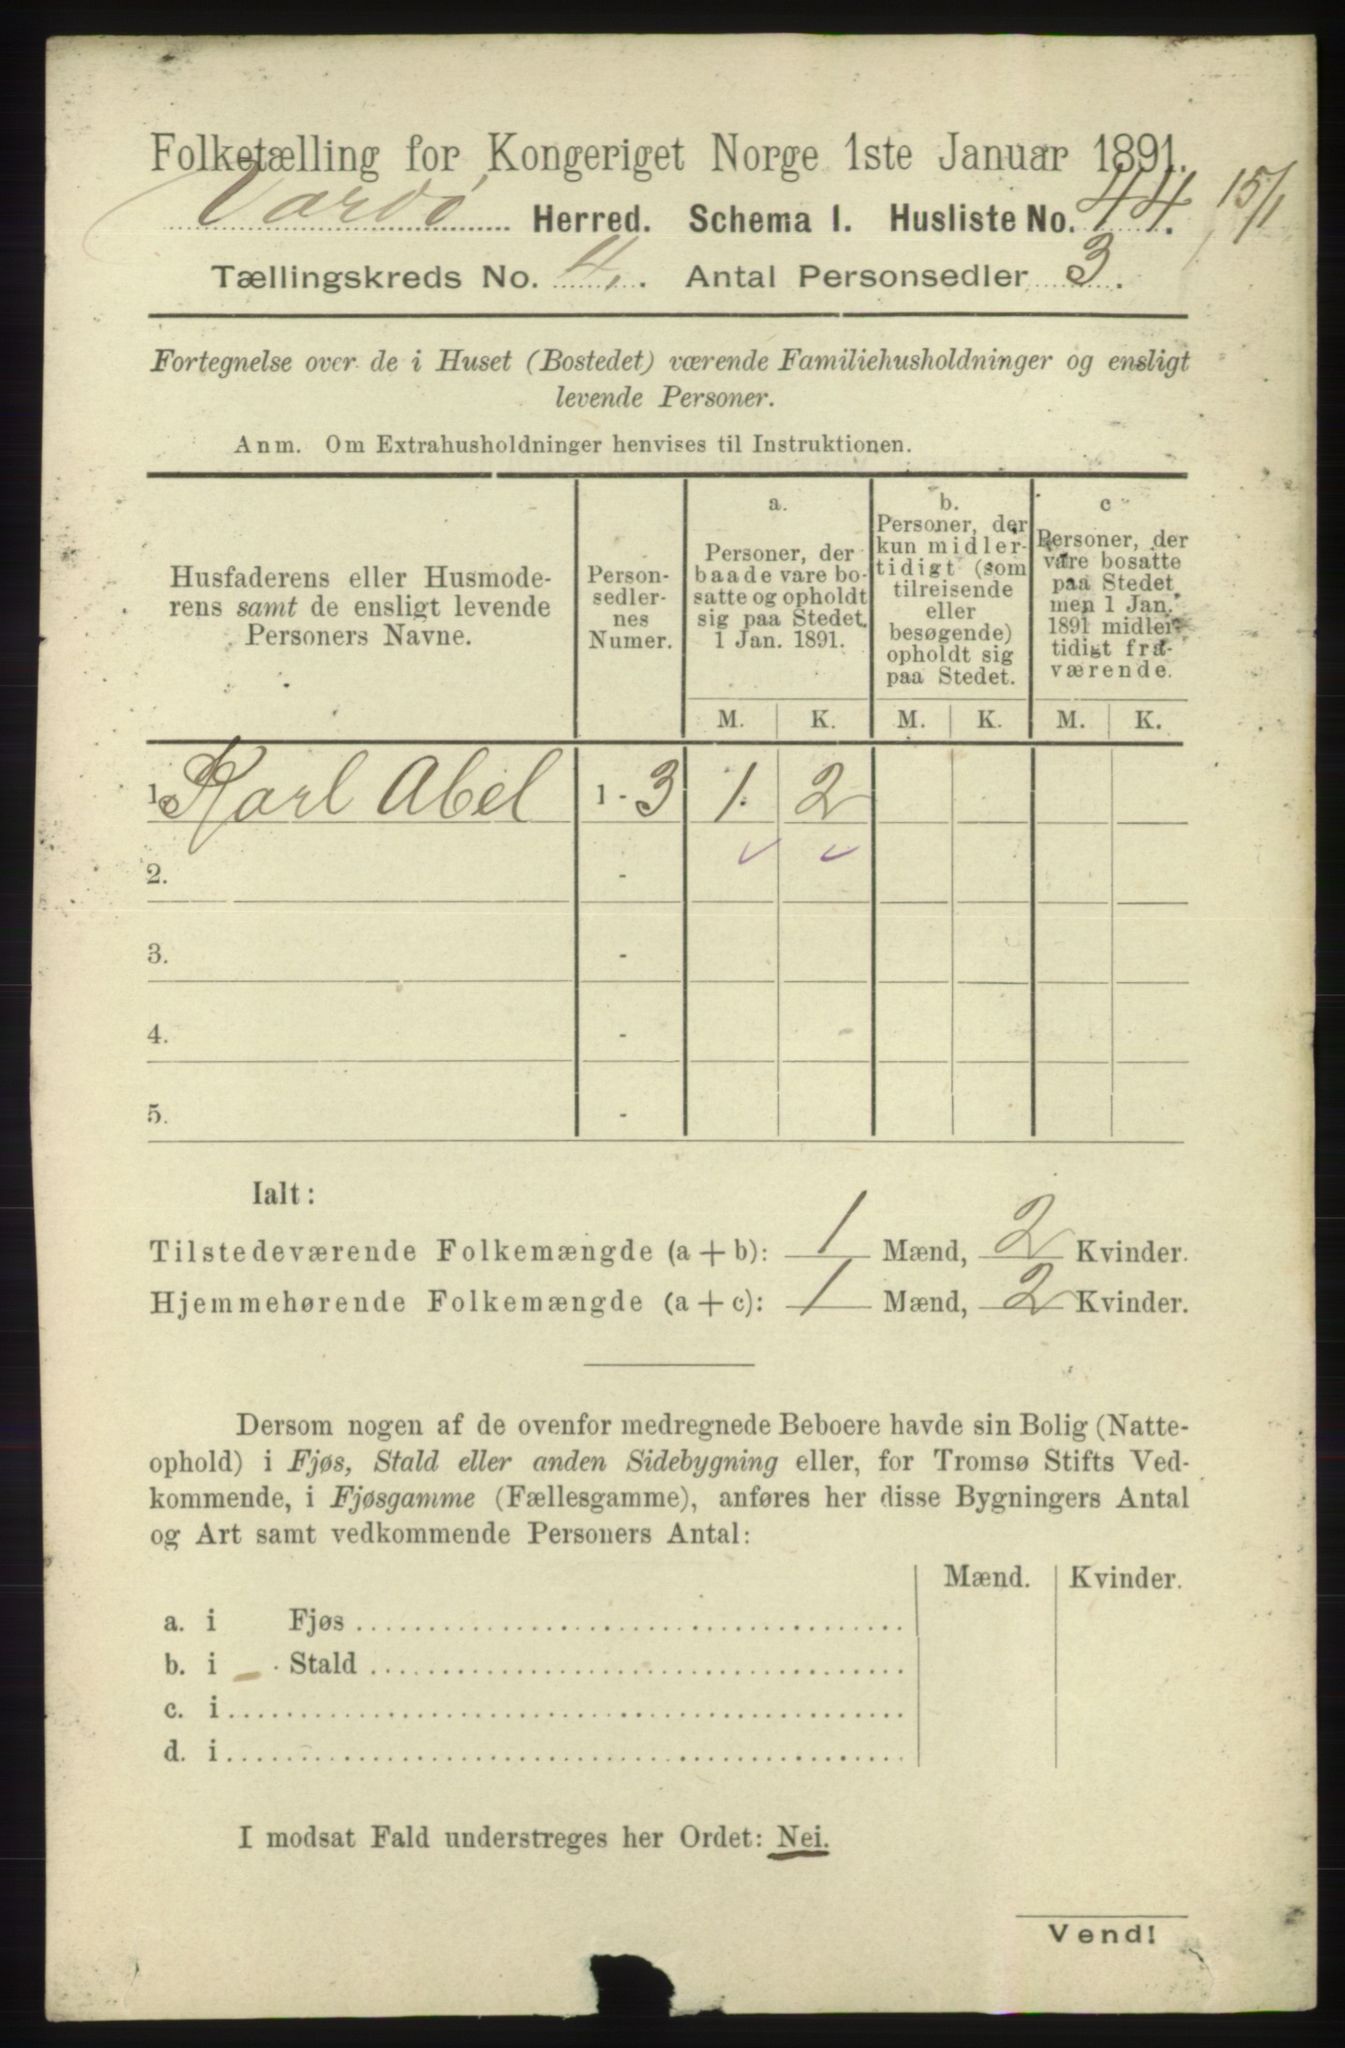 Folketælling for Kongeriget Norge 1ste Januar 1891.
Vardø Herred. Schema I. Husliste No. 44. 15/1
Tællingskreds No. 4. Antal Personsedler 3.
Fortegnelse over de i Huset (Bostedet) værende Familiehusholdninger og ensligt
levende Personer.
Anm. Om Extrahusholdninger henvises til Instruktionen.
Husfaderens eller Husmode-
rens samt de ensligt levende
Personers Navne.
Person-
sedler-
nes
Numer.
a.
Personer, der
baade vare bo-
satte og opholdt
sig paa Stedet
1 Jan. 1891.
b.
Personer, der
kun midler-
tidigt (som
tilreisende
eller
besøgende)
opholdt sig
paa Stedet.
c
Personer, der
vare bosatte
paa Stedet
men 1 Jan.
1891 midler-
tidigt fra-
værende.
M. K. M. K. M. K.
1. Karl Abel 1 - 3 1. 2
2. -
3. -
4. -
5. -
Ialt:
Tilstedeværende Folkemængde (a + b): 1 Mænd, 2 Kvinder.
Hjemmehørende Folkemængde (a + c): 1 Mænd, 2 Kvinder.
Dersom nogen af de ovenfor medregnede Beboere havde sin Bolig (Natte-
ophold) i Fjøs, Stald eller anden Sidebygning eller, for Tromsø Stifts Ved-
kommende, i Fjøsgamme (Fællesgamme), anføres her disse Bygningers Antal
og Art samt vedkommende Personers Antal:
Mænd. Kvinder.
a. i Fjøs
b. i Stald
c. i
d. i
I modsat Fald understreges her Ordet: Nei.
Vend!